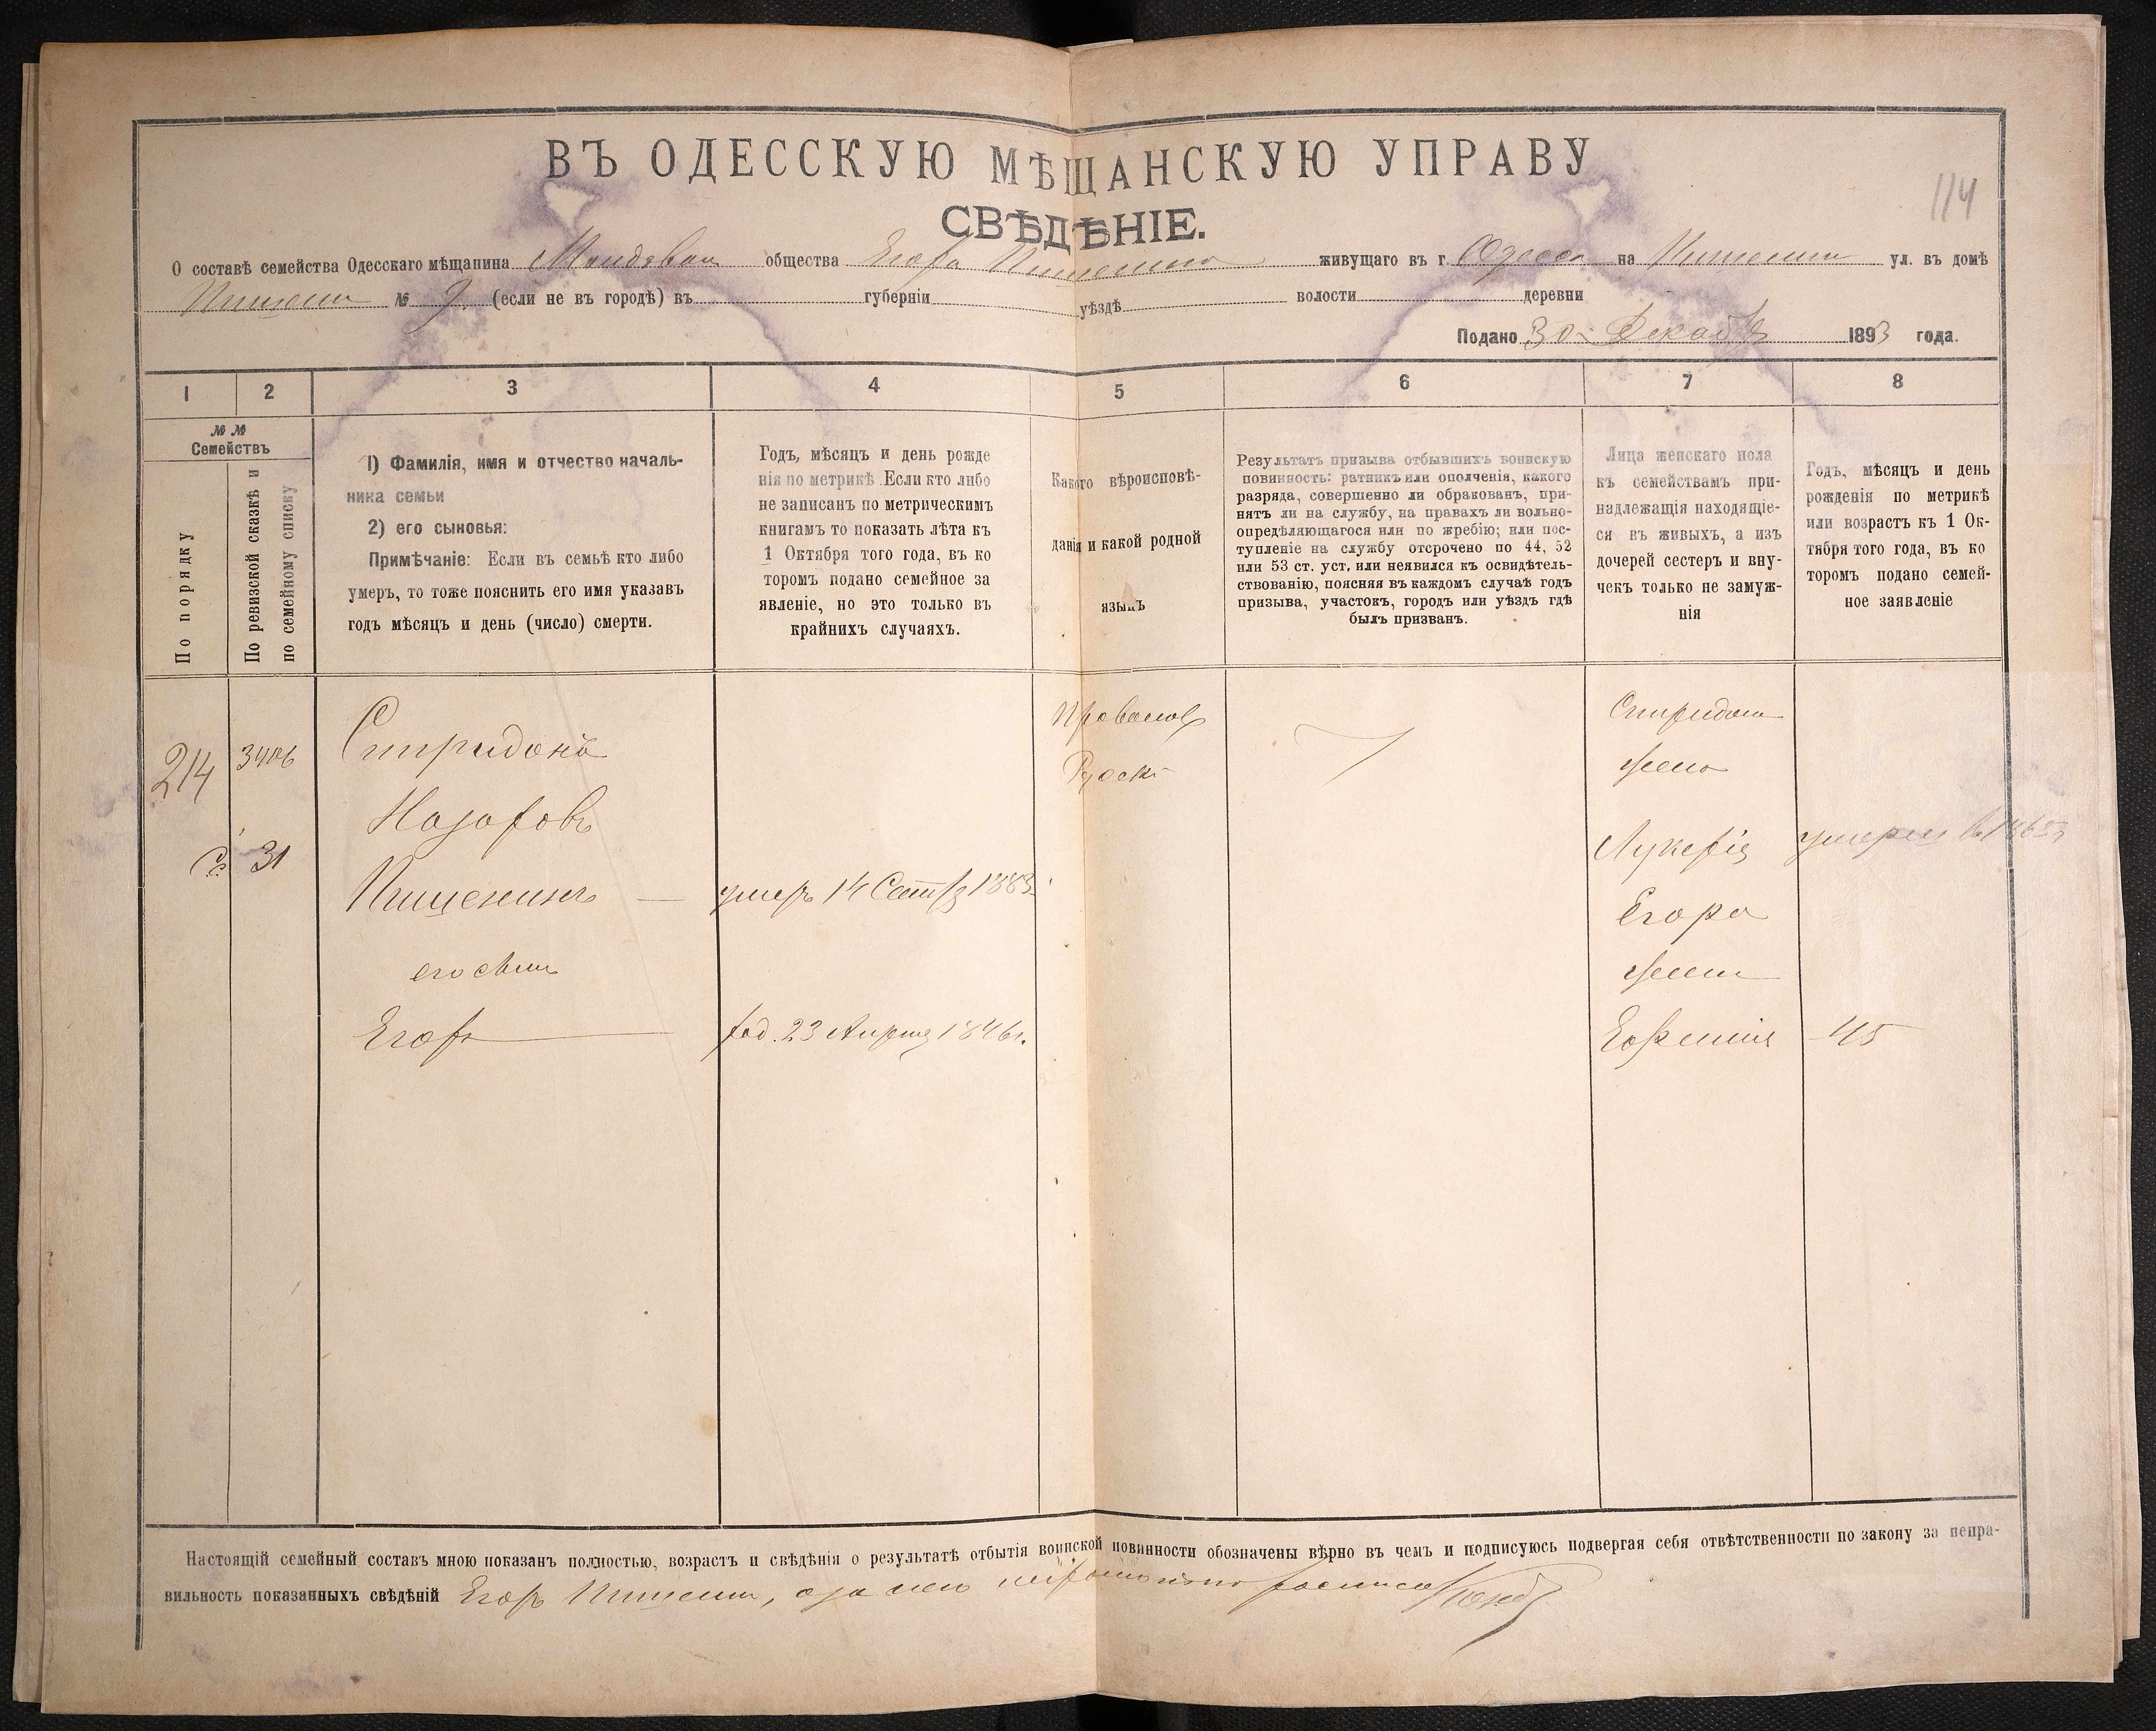 ВЪ ОДЕССКУЮ МѢЩАНСКУЮ УПРАВУ
114
СВѢДѢНІЕ.
О составѣ семейства Одесскаго мѣщанина общества Егора живущаго въ г. Одесса на ул. въ домѣ
№ 9. (если не въ городѣ) въ губерніи уѣздѣ волости деревни
Подано 30 Декабря 1893 года.
1 2 3 4 5 6 7 8
№ №
Семействъ
По порядку
По ревизской сказкѣ и
по семейному списку
1) Фамилія, имя и отчество началь-
ника семьи
2) его сыновья:
Примѣчаніе: Если въ семьѣ кто либо
умеръ, то тоже пояснить его имя указавъ
годъ мѣсяцъ и день (число) смерти.
Годъ, мѣсяцъ и день рожде
нія по метрикѣ. Если кто либо
не записанъ по метрическимъ
книгамъ то показать лѣта къ
1 Октября того года, въ ко
торомъ подано семейное за
явленіе, но это только въ
крайнихъ случаяхъ.
Какого вѣроисповѣ-
данія и какой родной
языкъ
Результатъ призыва отбывшихъ воинскую
повинность: ратникъ или ополченія, какого
разряда, совершенно ли обракованъ, при-
нятъ ли на службу, на правахъ ли вольно-
опредѣляющагося или по жребію; или пос-
тупленіе на службу отсрочено по 44, 52
или 53 ст. уст. или неявился къ освидѣтель-
ствованію, поясняя въ каждомъ случаѣ годъ
призыва, участокъ, городъ или уѣздъ гдѣ
былъ призванъ.
Лица женскаго пола
къ семействамъ при-
надлежащія находящіе-
ся въ живыхъ, а изъ
дочерей сестеръ и вну-
чекъ только не замуж-
нія
Годъ, мѣсяцъ и день
рожденія по метрикѣ
или возрастъ къ 1 Ок-
тября того года, въ ко
торомъ подано семей-
ное заявленіе
214
3406
31
Спиридонъ
Назаровъ
Пищенинъ — умеръ 14 Сентя 1883
его сынъ
Егоръ — род. 23 Апреля 1846 г.
Православ
Руск
Спиридона
жена
Лукерія умерла въ 1865 г
Егора
жена
Евфимія - 45
Настоящій семейный составъ мною показанъ полностью, возрастъ и свѣдѣнія о результатѣ отбытія воинской повинности обозначены вѣрно въ чемъ и подписуюсь подвергая себя отвѣтственности по закону за непра-
вильность показанныхъ свѣдѣній Егоръ